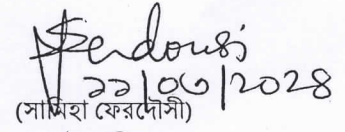 Sferdousi
১১/০৩/২০২৪
(সামিহা ফেরদৌসী)